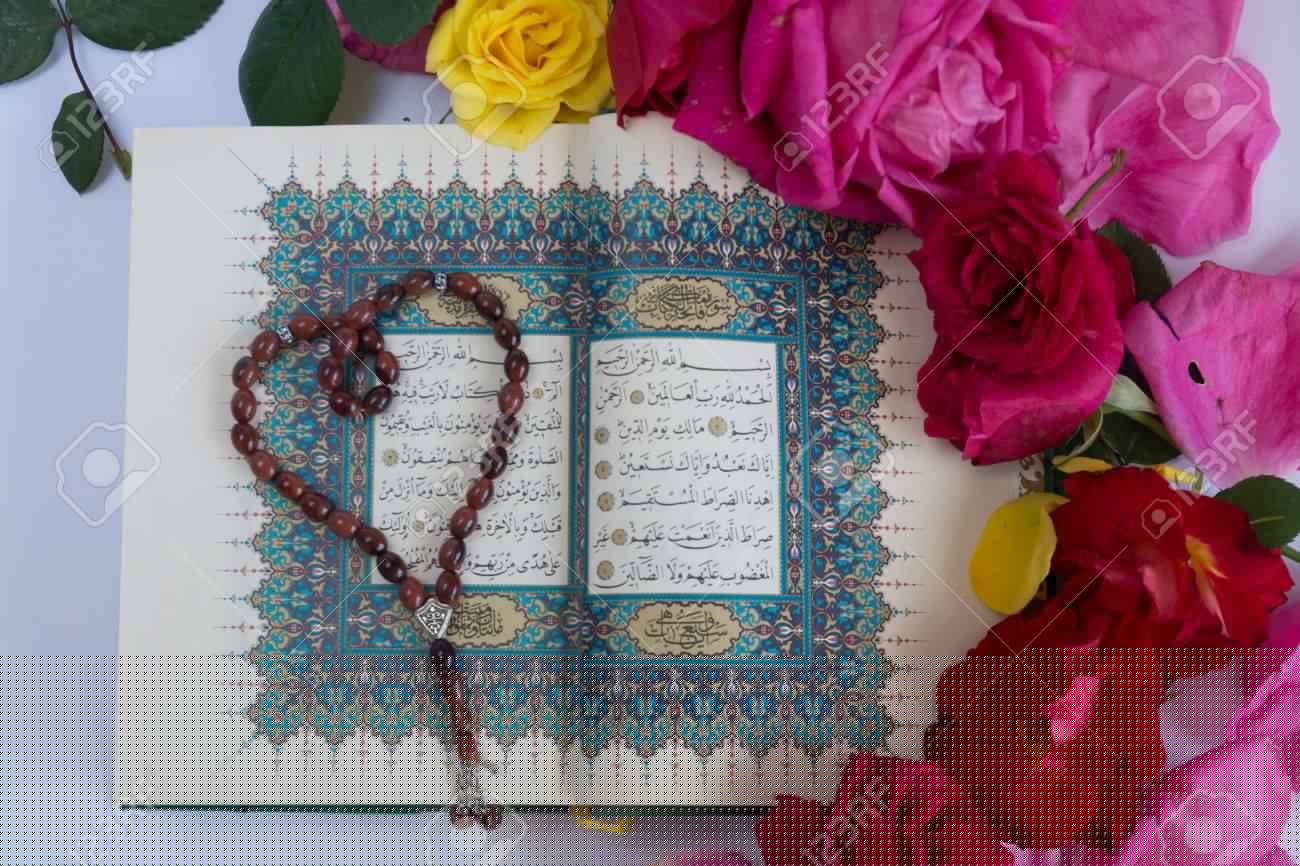 بِسْمِ اللَّهِ الرَّحْمَٰنِ الرَّحِيمِ
الْحَمْدُ لِلَّهِ رَبِّ الْعَالَمِينَ الرَّحْمَٰنِ
الرَّحِيمِ مَالِكِ يَوْمِ الدِّينِ
إِيَّاكَ نَعْبُدُ وَإِيَّاكَ نَسْتَعِينُ
اهْدِنَا الصِّرَاطَ الْمُسْتَقِيمَ
صِرَاطَ الَّذِينَ أَنْعَمْتَ عَلَيْهِمْ غَيْرِ
الْمَغْضُوبِ عَلَيْهِمْ وَلَا الضَّالِّينَ
بِسْمِ اللَّهِ الرَّحْمَٰنِ الرَّحِيمِ
الٓمٓ كِتَابُ لَا رَيْبَ فِيهِ
لِلْمُتَّقِينَ يُؤْمِنُونَ بِالْغَيْبِ وَيُقِيمُونَ
الصَّلَوٰةَ يُنْفِقُونَ
وَالَّذِينَ يُؤْمِنُونَ إِلَيْكَ وَمَا أُنْزِلَ مِنْ
قَبْلِكَ وَبِالْآخِرَةِ أُولَٰئِكَ
عَلَىٰ هُدًى مِنْ رَبِّهِمْ
123RF